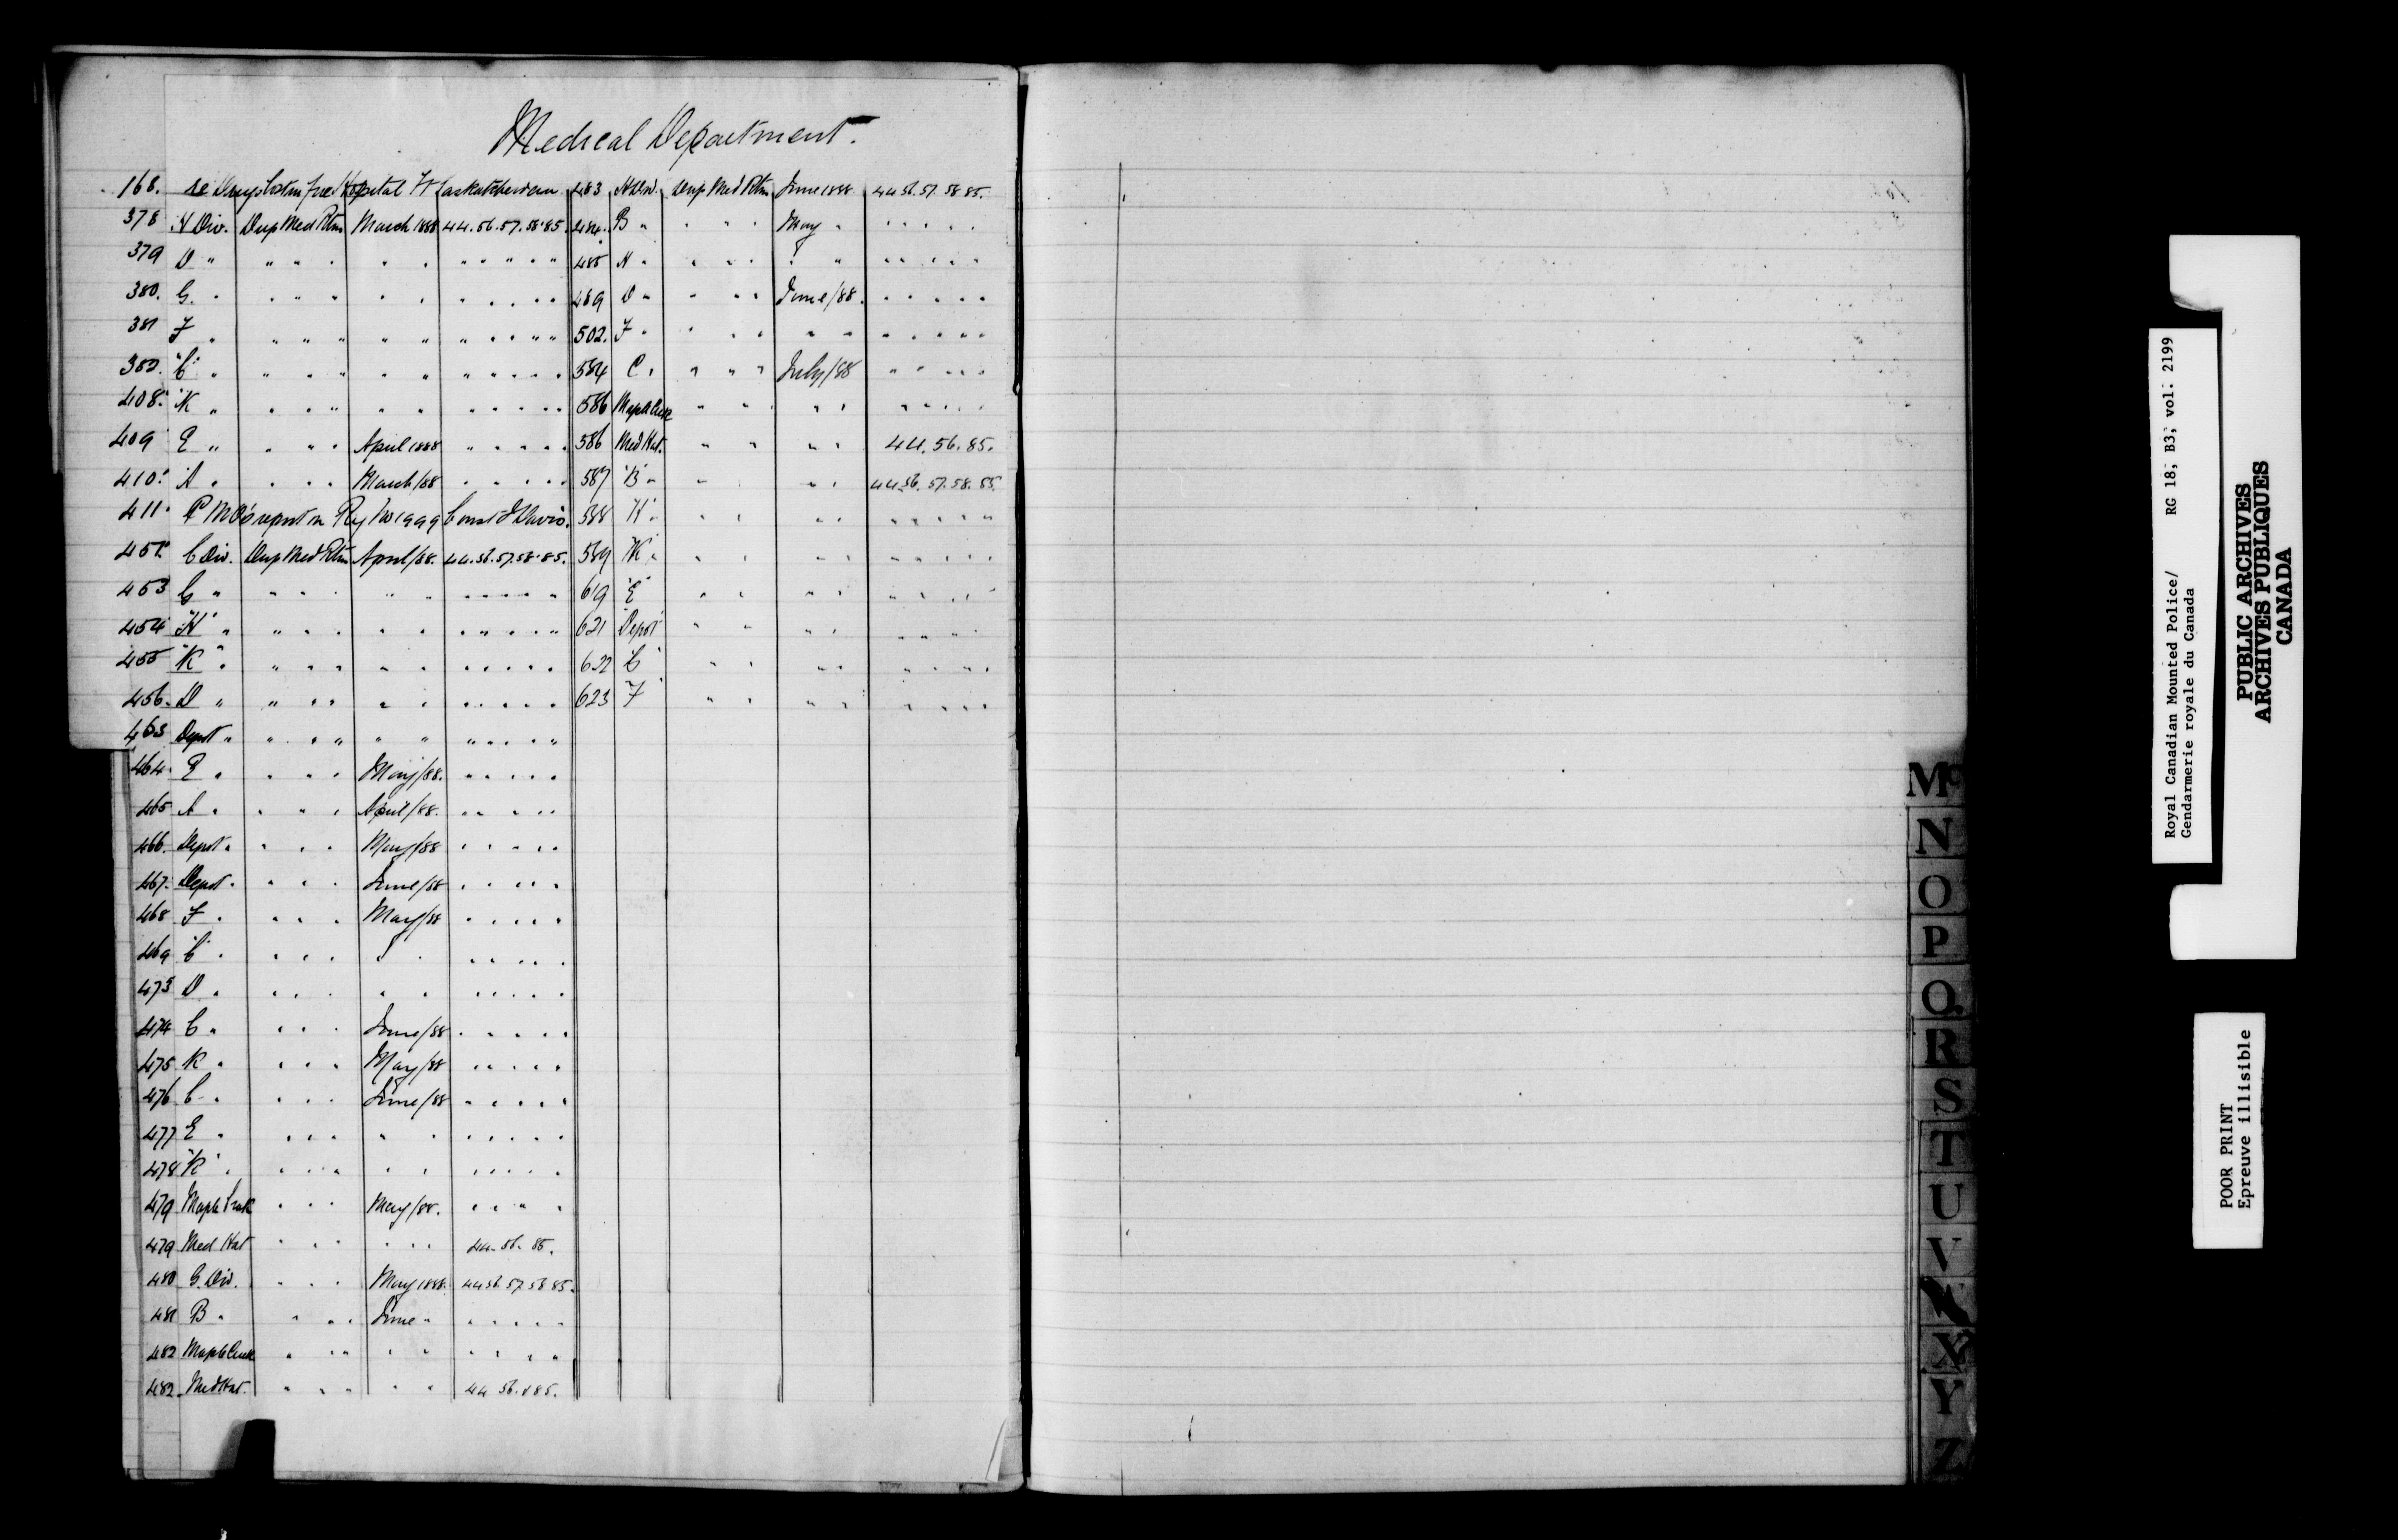 Medical Department.
168. re Drugs &c Hospital Ft Saskatchewan
378 H Div. Dup Med Rtns March 1888 44.56.57.58.85.
379 D " " " " " " " " " " "
380. G. " " " " " " " " " " "
381 F " " " " " " " " " " "
382. "C" " " " " " " " " " " "
408. "K " " " " " " " " " " "
409 E " " " " April 1888 " " " " "
410. A " " " " March/88 " " " " "
411. P M O's report on Reg No 1999 Const J Davis.
451. C Div. Dup Med Rtns April/88. 44.56.57.58.85.
453 G " " " " " " " " " " "
454 "H" " " " " " " " " " " "
455 "K" " " " " " " " " " " "
456. D " " " " " " " " " " "
463 Depot " " " " " " " " " " "
464. E " " " " May/88. " " " " "
465 A " " " " April/88. " " " " "
466. Depot " " " " May/88 " " " " "
467. Depot " " " " June/88 " " " " "
468 F " " " " May/88 " " " " "
469 "C" " " " " " " " " " " "
473 D " " " " " " " " " " "
474 C " " " " June/88 " " " " "
475 K " " " " May/88 " " " " "
476 C " " " " June/88 " " " " "
477 E " " " " " " " " " " "
478 "K" " " " " " " " " " " "
479 Maple Creek " " " May/88. " " " "
479 Med Hat " " " " " " 44. 56. 85.
480 G. Div. " " " May 1888. 44 56. 57 58 85.
481 B " " " " June " " " " " "
482 Maple Creek " " " " " " " " " "
482. Med Hat. " " " " " 44 56. 85.
483 H Div. Dup Med Rtns June 1888 44 56. 57. 58 85.
484. B " " " " May " " " " " "
485 H " " " " " " " " " " "
489 D " " " " June/88. " " " " "
502. F " " " " " " " " " " "
584 C " " " " July/88 " " " " "
586 Maple Creek " " " " " " " " "
586 Med Hat. " " " " 44. 56. 85.
587 "B" " " " " " 44 56. 57. 58. 85.
588 H " " " " " " " " " "
589 "K" " " " " " " " " " "
619 "E" " " " " " " " " "
621 Depot " " " " " " " "
622 "C" " " " " " " " "
623 "F" " " " " " " " "
Mc
N
O
P
Q
R
S
T
U
V
W
X
Y
Z
Royal Canadian Mounted Police/ RG 18, B3, vol. 2199
Gendarmerie royale du Canada
PUBLIC ARCHIVES
ARCHIVES PUBLIQUES
CANADA
POOR PRINT
Epreuve illisible